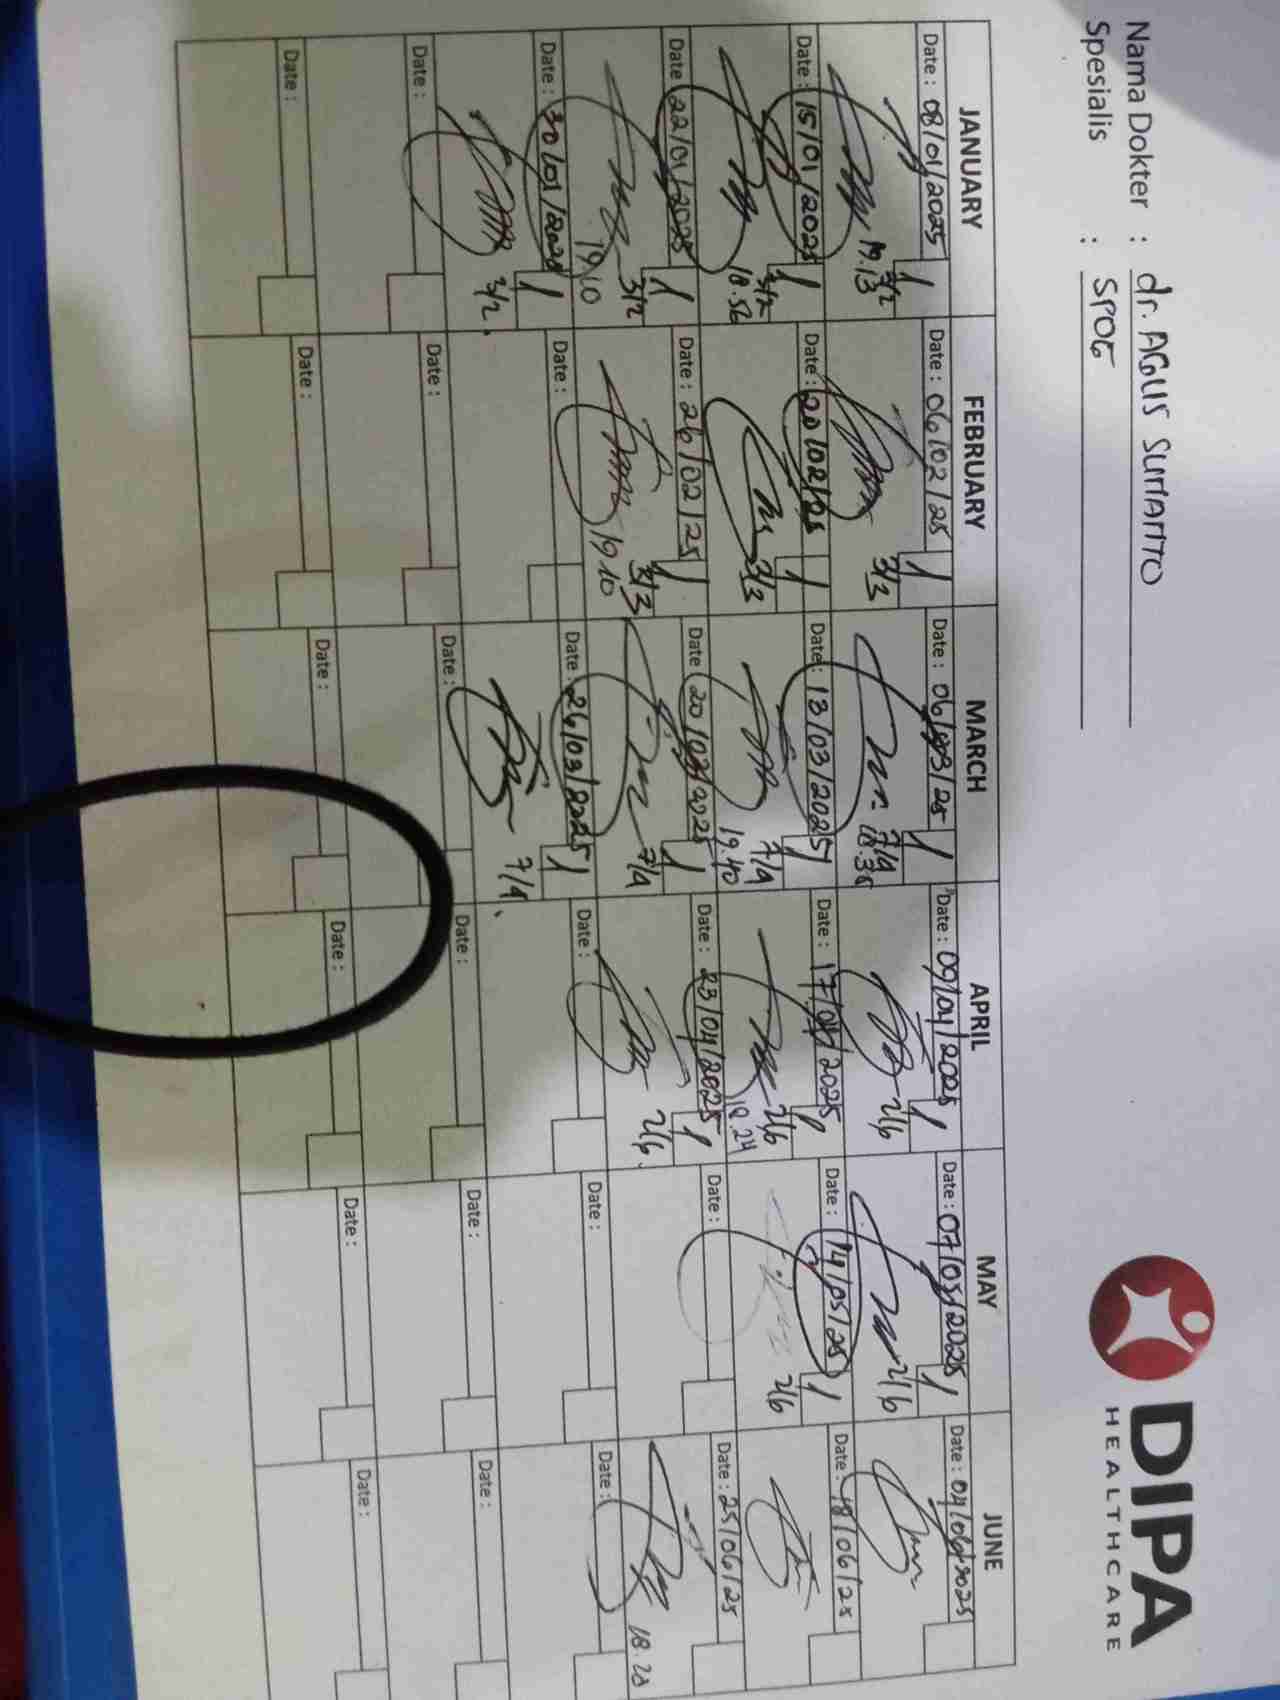 Nama Dokter : dr. AGUS SUMANTO
Spesialis : SPOG
DIPA
HEALTHCARE
JANUARY FEBRUARY MARCH APRIL MAY JUNE
Date : 08/01/2025 1 Date : 06/02/25 1 Date : 06/03/25 1 Date : 09/04/2025 1 Date : 07/05/2025 1 Date : 04/06/2025
3/2 19.13 3/3 7/4 18.38 2/6 2/6
Date : 15/01/2025 1 Date : 20/02/25 1 Date : 13/03/2025 1 Date : 17/04/2025 1 Date : 14/05/25 1 Date : 18/06/25
3/2 18.56 3/3 7/4 19.40 2/6 18.24 2/6
Date : 22/01/2025 1 Date : 26/02/25 1 Date : 20/03/2025 1 Date : 23/04/2025 1 Date : Date : 25/06/25
3/2 19.10 3/3 19.10 7/4 2/6. 18.28
Date : 30/01/2025 1 Date : Date : 26/03/2025 1 Date : Date : Date :
3/2. 7/4.
Date : Date : Date : Date : Date : Date :
Date : Date : Date : Date : Date : Date :